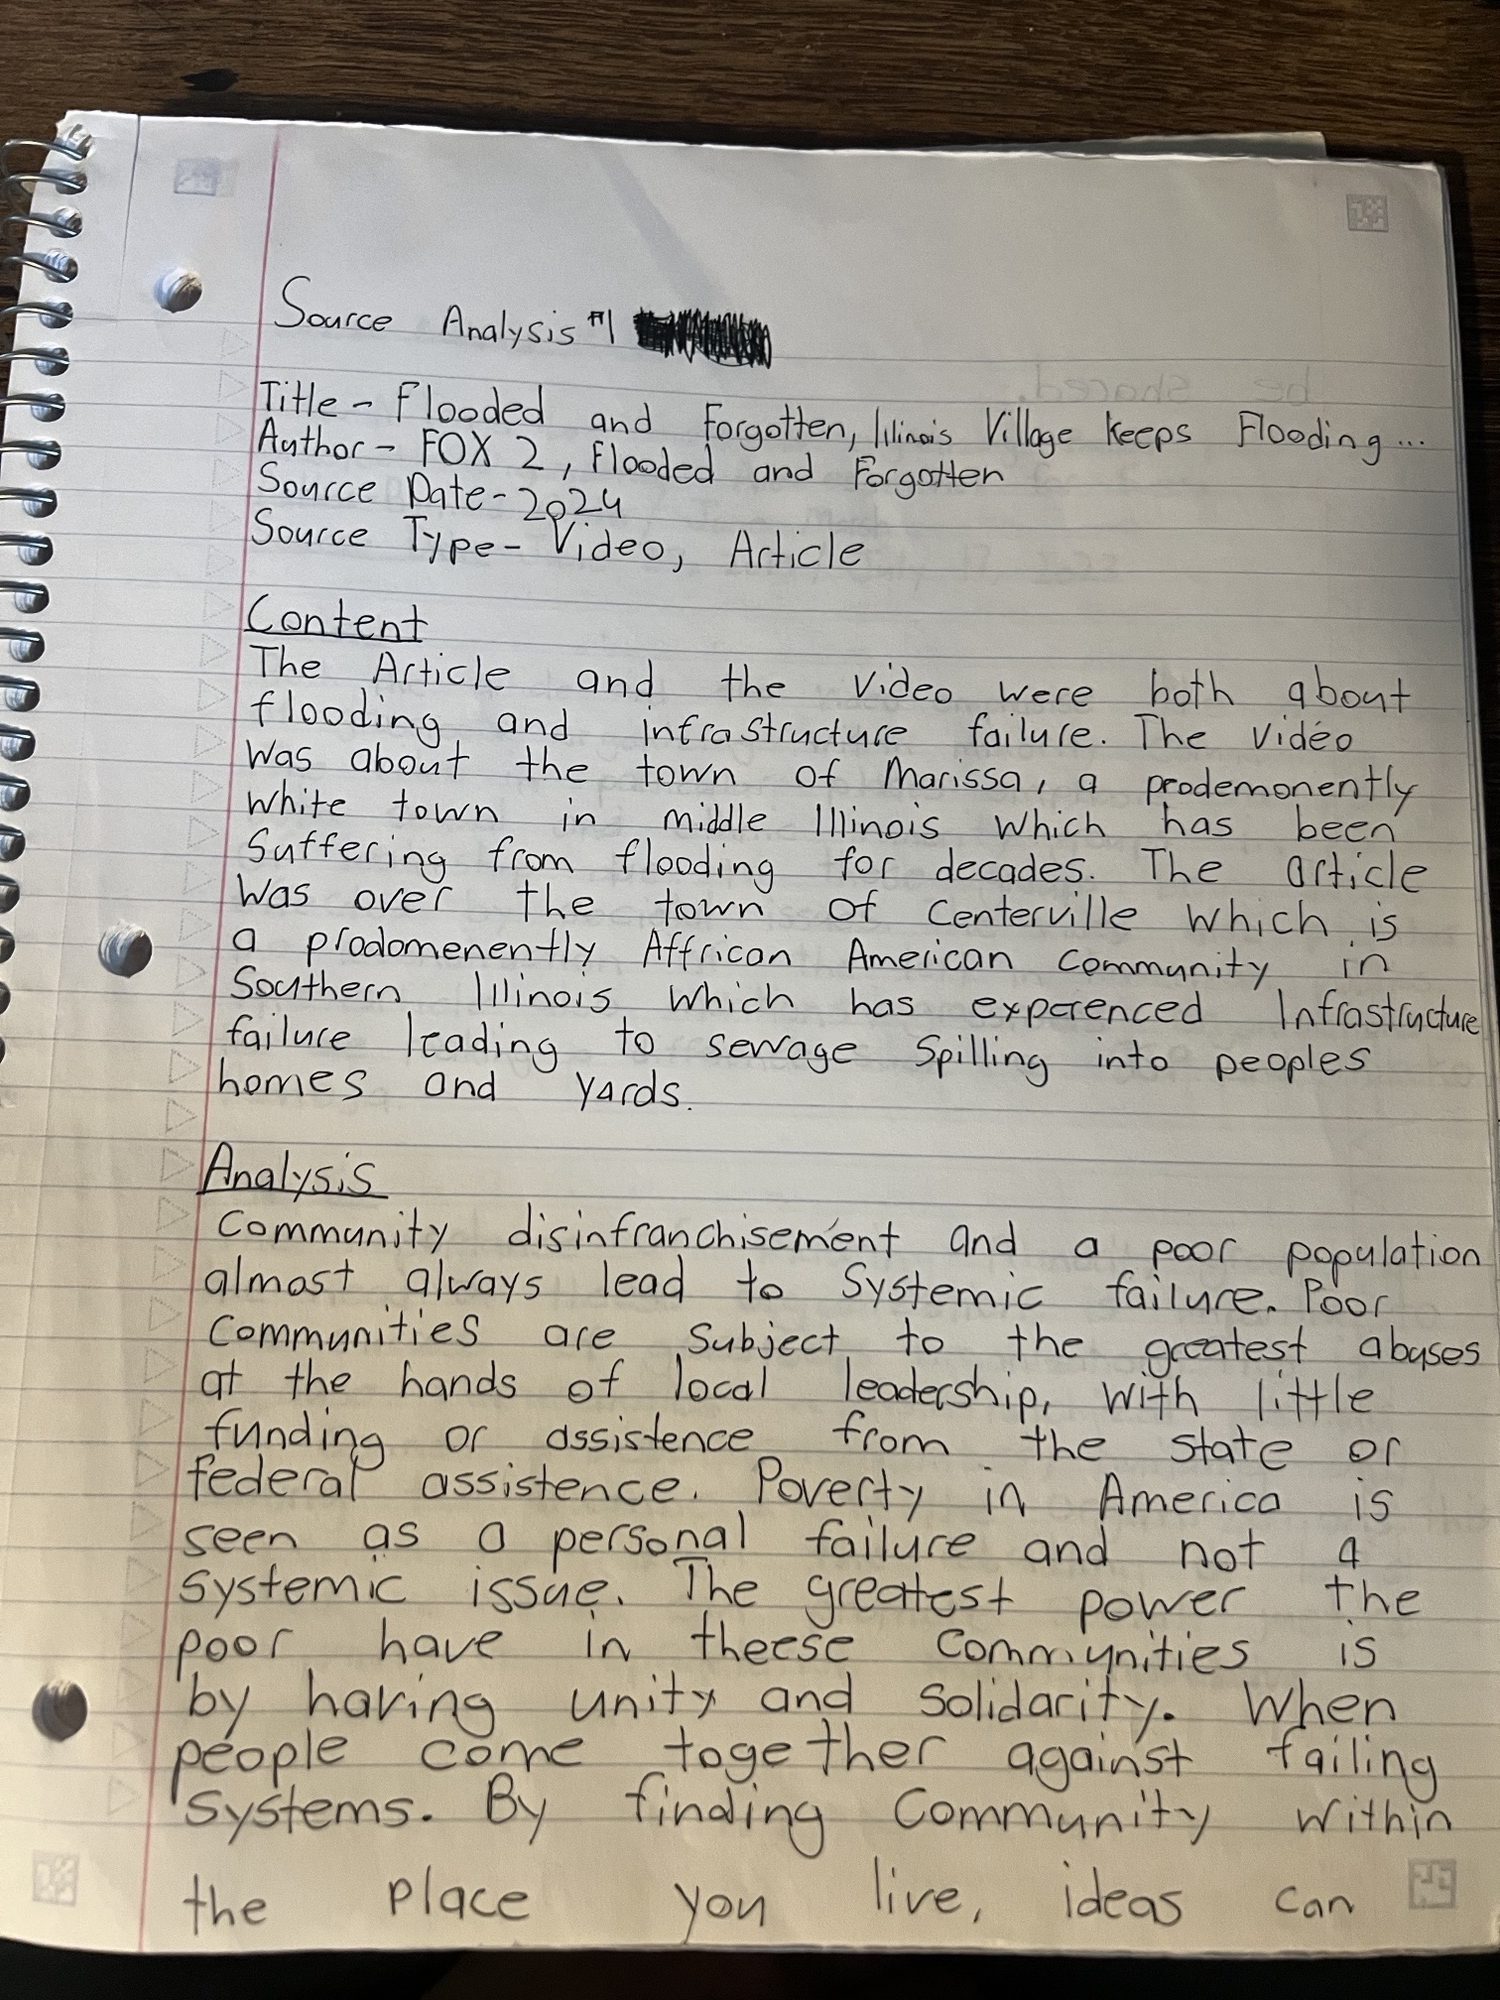 Source Analysis #1
Title - Flooded and Forgotten, Illinois Village Keeps Flooding...
Author - FOX 2, Flooded and Forgotten
Source Date - 2024
Source Type - Video, Article
Content
The Article and the video were both about
flooding and infrastructure failure. The video
was about the town of Marissa, a prodemonently
white town in middle Illinois which has been
Suffering from flooding for decades. The article
was over the town of Centerville which is
a prodomenently Affrican American community in
Southern Illinois which has experenced Infrastructure
failure leading to sewage spilling into peoples
homes and yards.
Analysis
Community disinfranchisement and a poor population
almost always lead to Systemic failure. Poor
Communities are subject to the greatest abuses
at the hands of local leadership, with little
funding or assistence from the state or
federal assistence. Poverty in America is
seen as a personal failure and not a
systemic issue. The greatest power the
poor have in theese communities is
by having unity and solidarity. When
people come together against failing
systems. By finding Community within
the place you live, ideas can
be shared.